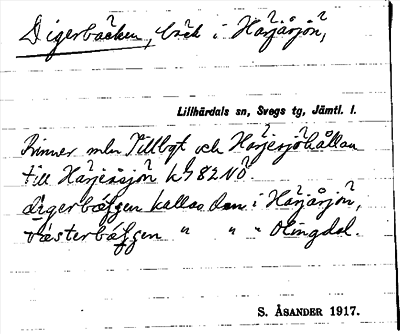 Digerbäcken, bäck i Härjåsjön,
Lillhärdals sn, Svegs tg, Jämtl. l.
Rinner mln Tillbgt och Härjesjöhållan
till Härjåsjön
digerbäḱḱen kallas den i Härjåsjön,
västerbäḱḱen " " " Olingdal.
S. ÅSANDER 1917.